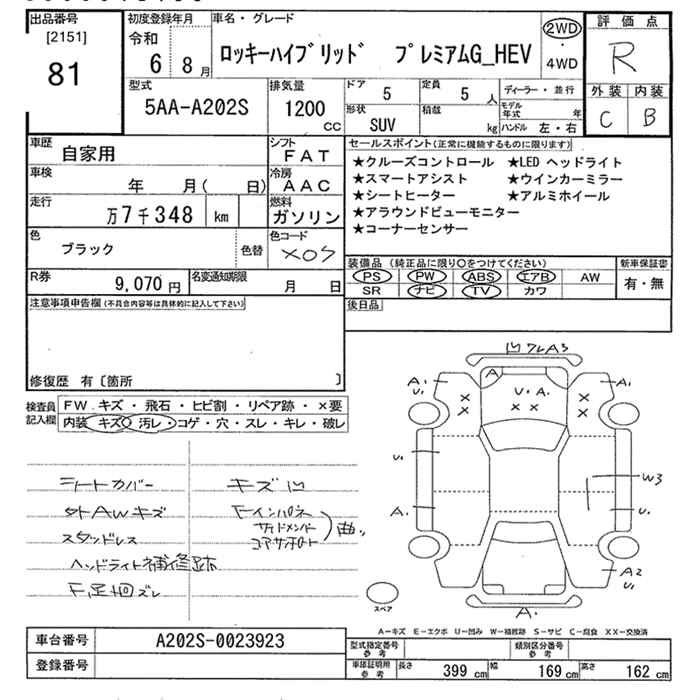 出品番号
[2151]
81
初度登録年月
令和
6 8月
車名・グレード
ロッキーハイブリッド プレミアムG_HEV
2WD
・
4WD
評価点
R
外装 内装
C B
型式
5AA-A202S
排気量
1200
CC
ドア
5
定員
5
人
形状
SUV
積載
kg
ディーラー・並行
モデル年式 年
ハンドル 左・右
車歴
自家用
シフト
FAT
車検
年 月( 日)
冷房
AAC
走行
万7千348 km
燃料
ガソリン
色
ブラック
色替
色コード
X07
R券
9,070円
名変通知期限
月 日
セールスポイント(正常に機能するものに限ります)
★クルーズコントロール ★LED ヘッドライト
★スマートアシスト ★ウインカーミラー
★シートヒーター ★アルミホイール
★アラウンドビューモニター
★コーナーセンサー
装備品 (純正品に限り○をつけてください)
PS PW ABS エアB AW
SR ナビ TV カワ
新車保証書
有・無
後日品
注意事項申告欄(不具合内容等は具体的に記入して下さい)
修復歴 有〔箇所 〕
検査員記入欄
FW キズ・飛石・ヒビ割・リペア跡・×要
内装 キズ・汚レ・コゲ・穴・スレ・キレ・破レ
シートカバー
タトAWキズ
スタッドレス
ヘッドライト補修跡
F足回ズレ
キズ凹
Fインパネ
サイドメンバー
コアサポート
曲り
凹ワレA3
A
A1
U1
U・A1
× ×
×
×
×
×
A1
U1
U1
A1
W3
U1
A2
U1
A1
スペア
A－キズ E－エクボ U－凹み W－補修跡 S－サビ C－腐食 XX－交換済
車台番号
A202S-0023923
登録番号
型式指定番号
参考
類別区分番号
参考
車庫証明用
参考
長さ 399 cm 幅 169 cm 高さ 162 cm